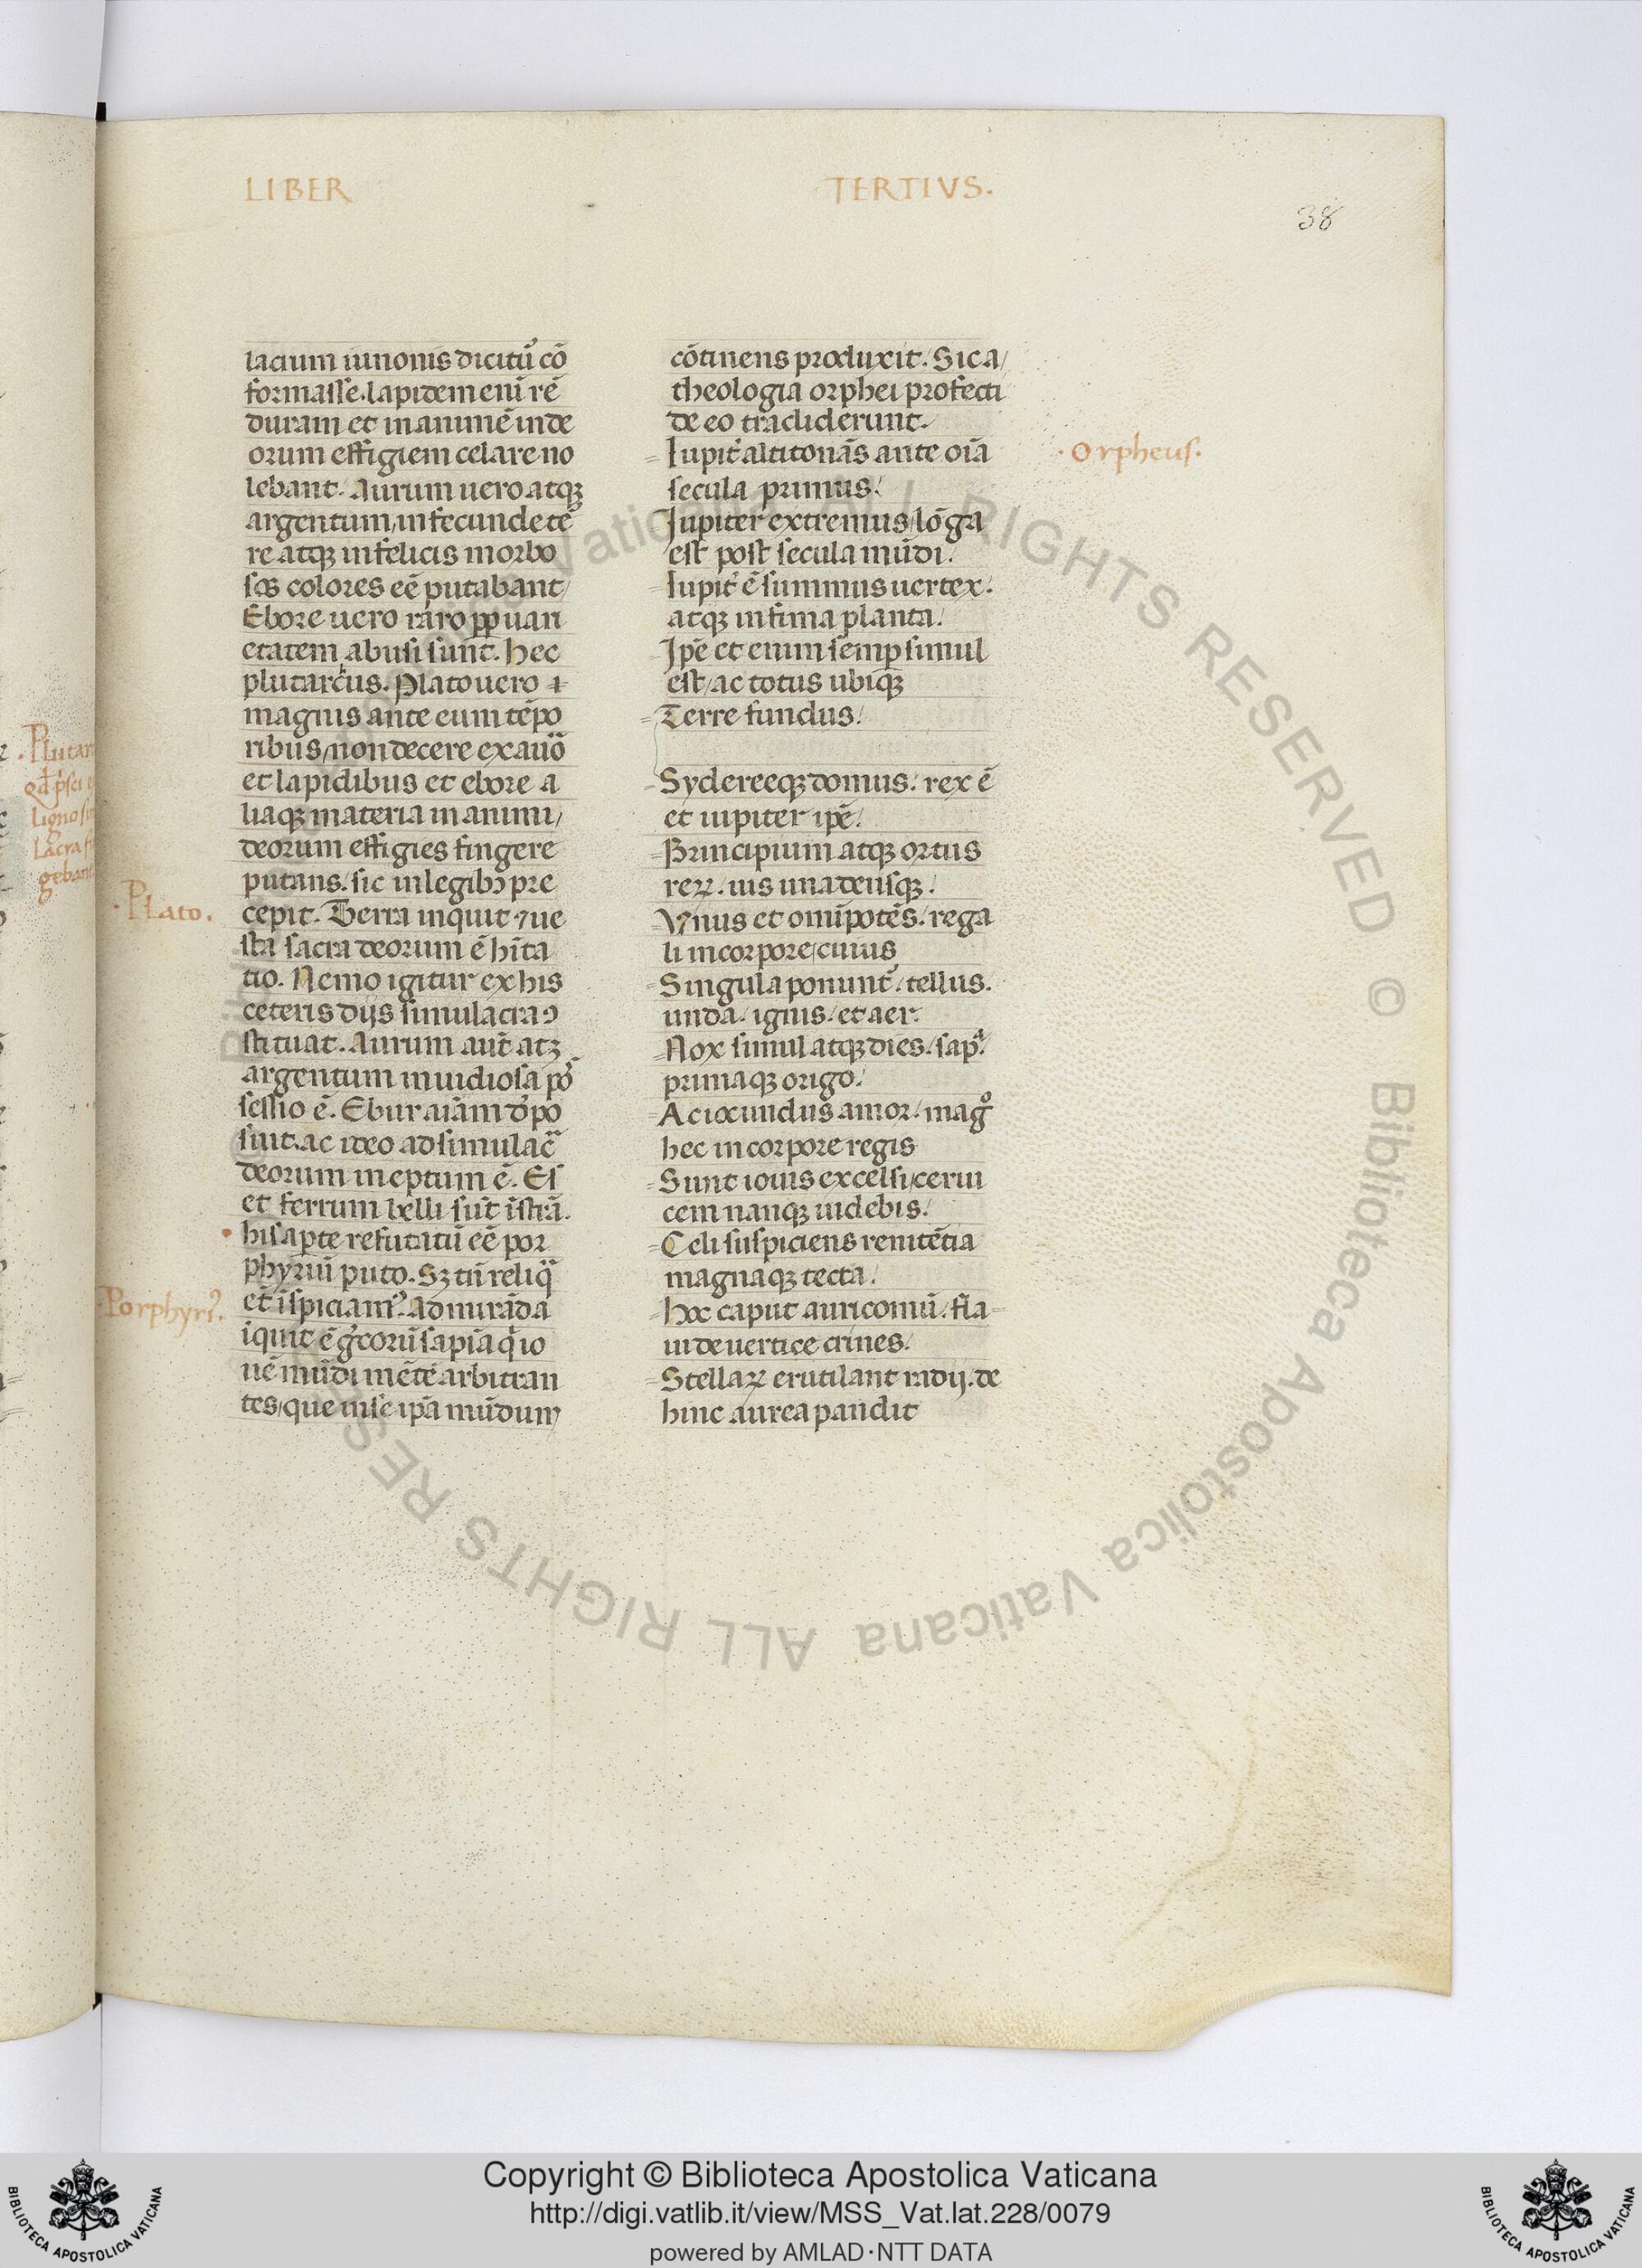 LIBER TERTIVS.
38
lacium iunonis dicitu᷑ cō
formasse. lapidem eni᷑ rē
duram et inanimē in de
orum effigiem celare no
lebant. Aurum uero atqꝫ
argentum, infecunde tē
re atqꝫ infelicis morbo
sos colores eē putabant/
Ebore uero raro ꝓp uari
etatem abusi sunt. hec
plutarcus. Plato uero ⁊
magnis ante eum tēpo
ribus/ non decere ex auō
et lapidibus et ebore a
liaqꝫ materia inanimi/
deorum effigies fingere
putans. sic in legibꝰ pre
cepit. Terra inquit ⁊ ue
sta sacra deorum ē hīta
tio. Nemo igitur ex his
ceteris dijs simulacra ꝯ
stituat. Aurum aut̄ atqꝫ
argentum inuidiosa pos
sessio ē. Ebur aīam dꝰpo
suit. ac ideo ad simulac̄
deorum ineptum ē. Es
et ferrum belli sūt īstrā.
his apte refutatū eē por
phyriū puto. Sꝫ tn̄ reliq̄
et īspiciamꝰ. Admirāda
iquit ē grcorū sapīa q io
uē mūdi mētē arbitran
tes/ que in se ipā mūdum
cōtinens produxit. Sic a/
theologia orphei profecti
de eo tradiderunt.
Iupit᷑ altitonās ante oīa
secula primus/
Iupiter extremus/ lōga
est post secula mūdi.
Iupit᷑ ē summus uertex.
atqꝫ infima planta/
Ipē et enim semp simul
est/ ac totus ubiqꝫ
Terre fundus/
Sydereeqꝫ domus/ rex ē
et iupiter ipē/
Principium atqꝫ ortus
reꝝ. uis una deusqꝫ.
Vnus et omīpotēs/ rega
li in corpore/ cuius
Singula ponunt᷑/ tellus.
unda/ ignis/ et aer.
Nox simul atqꝫ dies/ sapᷓ/
primaqꝫ origo/
Ac iocundus amor/ magͦ
hec in corpore regis
Sunt iouis excelsi/ cerui
cem nanqꝫ uidebis/
Celi suspiciens renitētia
magnaqꝫ tecta/
Hoc caput auricomū/ fla
ui de uertice crines/
Stellaꝝ erutilant radij. de
hinc aurea pandit
·Orpheus·
·Plato·
Porphyriꝰ.
Copyright © Biblioteca Apostolica Vaticana
http://digi.vatlib.it/view/MSS_Vat.lat.228/0079
powered by AMLAD·NTT DATA
BIBLIOTECA APOSTOLICA VATICANA
BIBLIOTECA APOSTOLICA VATICANA